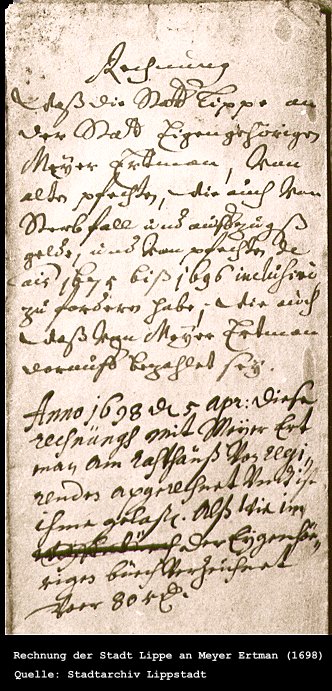 Rechnung
Waß die Statt Lippe an
der Statt Eigengehörigen
Meyer Ertman, von
alte pfechte, wie auch von
Sterbfall und auffzugß
gelde, und von pfechte de
aiȓ 1675 biß 1696 inclusive
zu fordern habe, wie auch
waß von Meyer Ertman
darauff bezahlet sey.
Anno 1698 d 5 apr: diese
rechnungh mit Meyer Ert
man am rathauß von regi,
renden apgerechnet und
ihme gelaß. Alß wie im
der Eygenhö,
rigen buch verzeichnet
vor 80 rd.
Rechnung der Stadt Lippe an Meyer Ertman (1698)
Quelle: Stadtarchiv Lippstadt